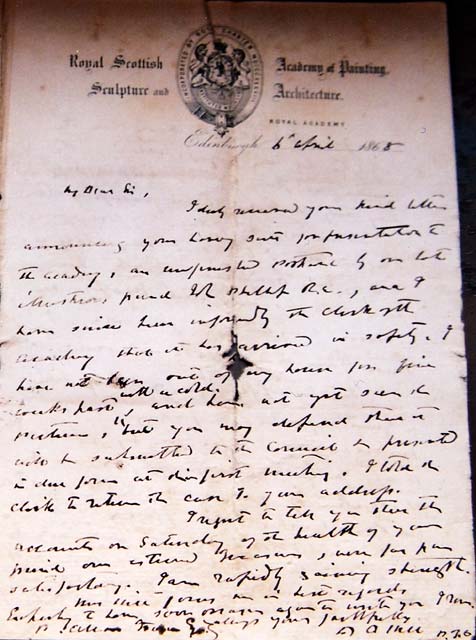 Royal Scottish Academy of Painting,
Sculpture and Architecture.
ROYAL ACADEMY
Edinburgh 6th April 1868
My Dear Sir,
I duly received your kind letter
announcing your having sent for presentation to
the Academy, an unfinished Portrait by our late
illustrious friend John Phillip R.A., and I
have since been informed by the Clerk of the
Academy that it has arrived in safety. I
have not been out of my house for five
weeks past with a cold, and have not yet seen the
picture, but you may depend that it
will be submitted to the Council & presented
in due form at our first meeting. I told the
clerk to return the case to your address.
I regret to tell you that the
accounts on Saturday of the health of your
friend our esteemed Treasurer, were far from
satisfactory. I am rapidly gaining strength.
Mrs Hill joins me in best regards
to have soon again
always yours faithfully
D. O. Hill